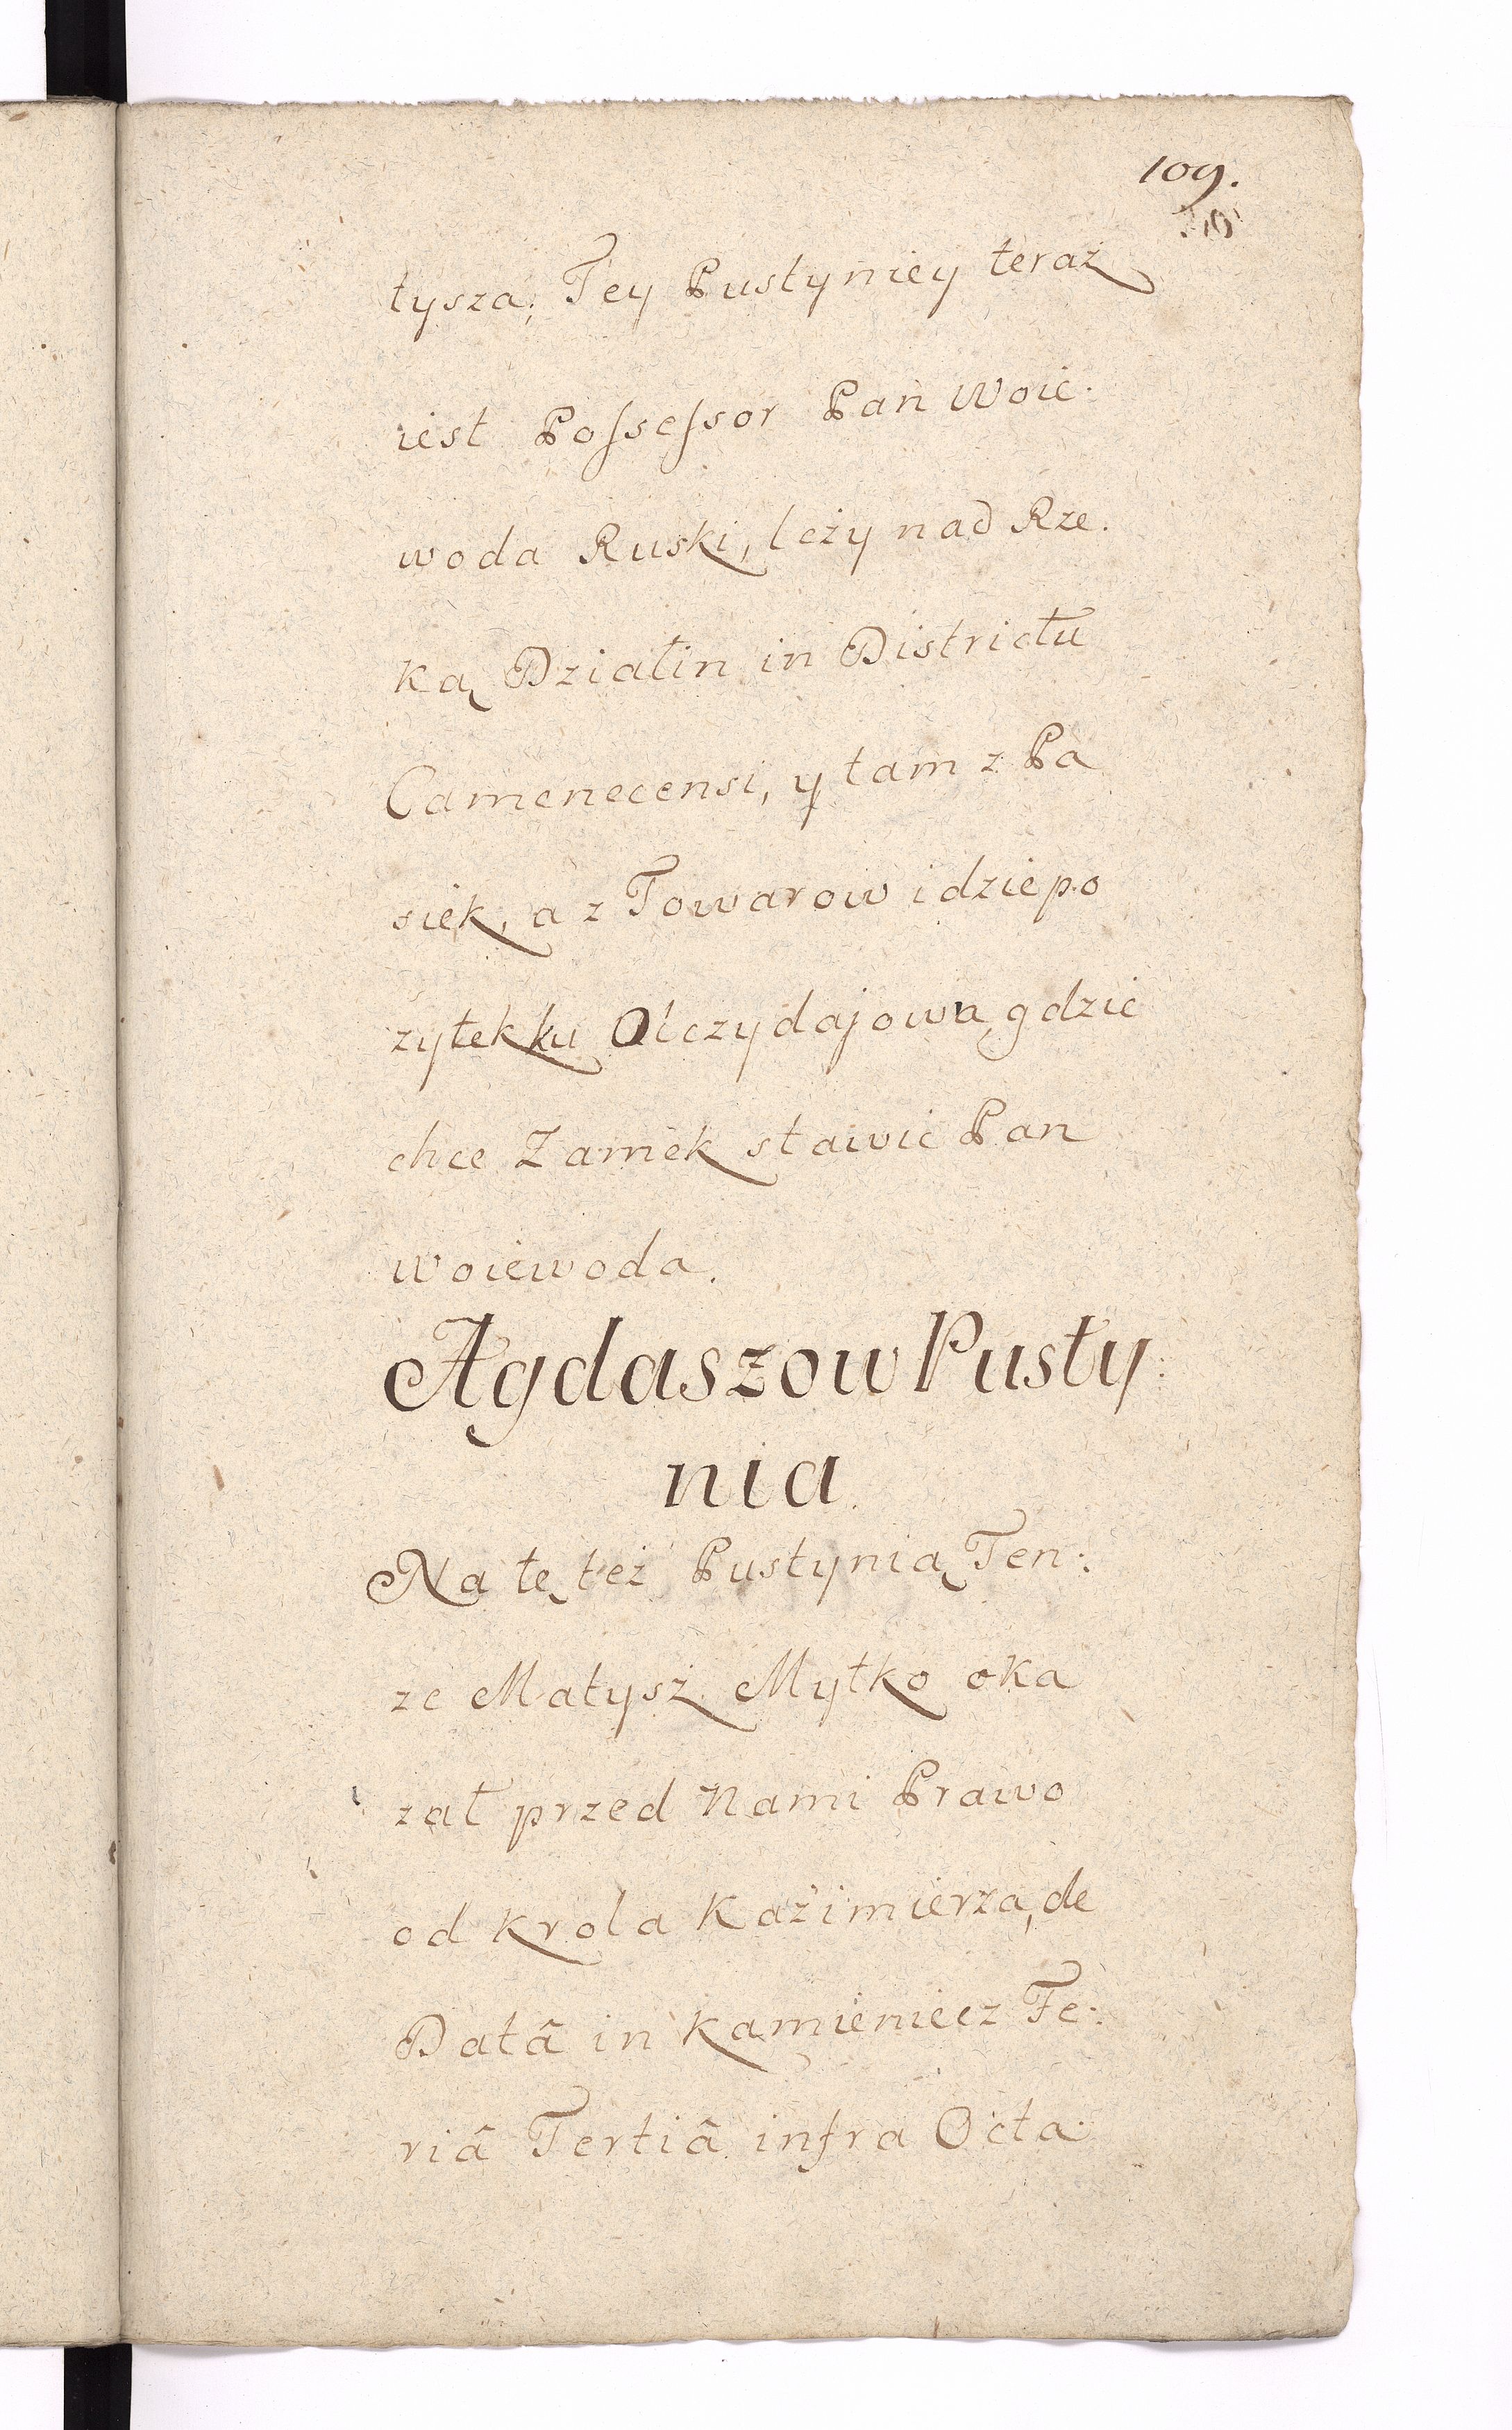 109.
tysza; Tey Pustyniey teraż
iest Possessor Pan Woie:
woda Ruski, leży nad Rze.
ką Dziatin in Districtu
Camenecensi, y tam z Pa
siek, a z Towarow idzie po
zytek ku Olczydajowu, gdzie
chce Zamek stawic Pan
woiewoda.
Agdaszow Pusty:
nia.
Na tę też Pustynią Ten:
ze Matysz Mytko oka
zał przed Nami Prawo
od Krola Kazimierza, de
Datâ in Kamieniecz Fe:
riâ Tertiâ infra Octa: